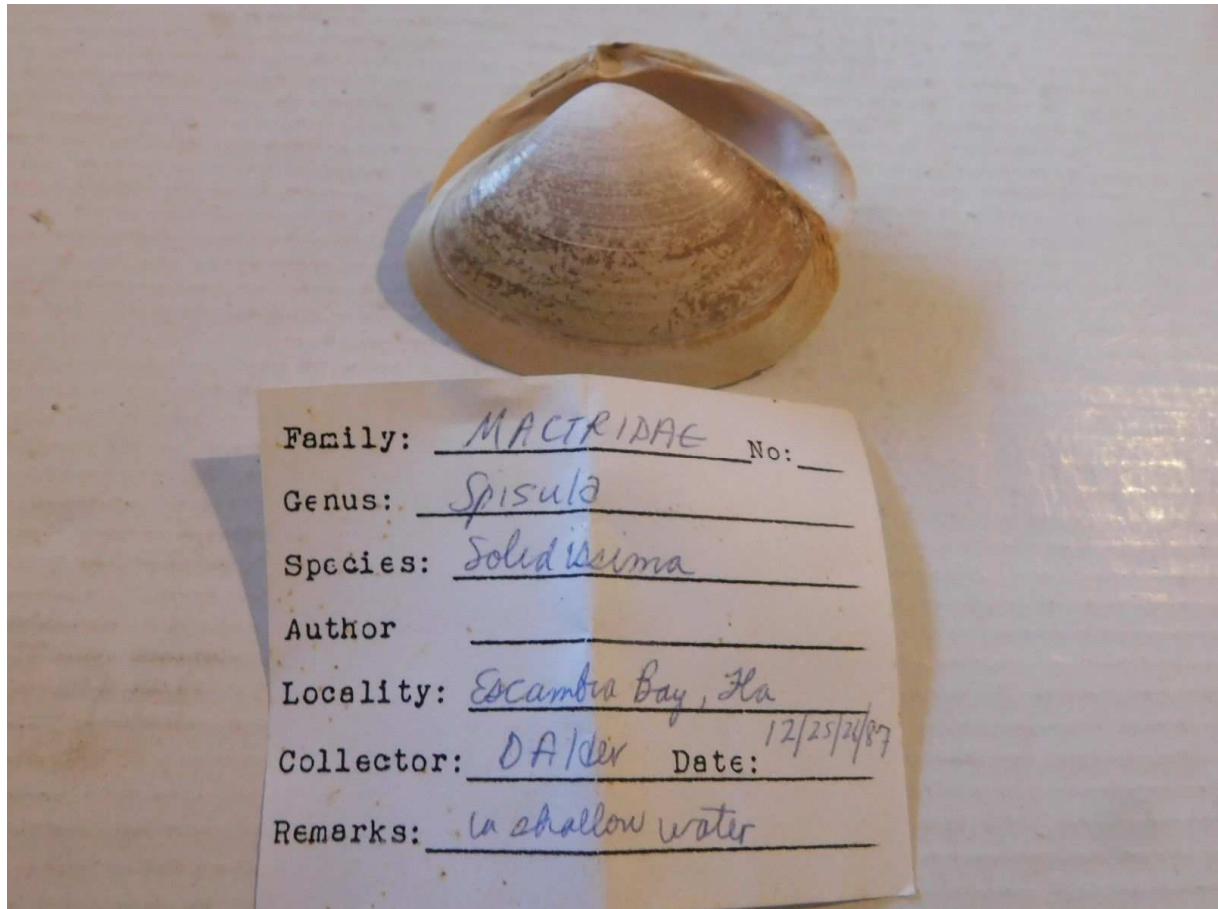 Family: MACTRIDAE No:
Genus: Spisula
Species: Solidissima
Author
Locality: Escambia Bay, Fla
Collector: D Alder Date: 12/25/26/87
Remarks: in shallow water